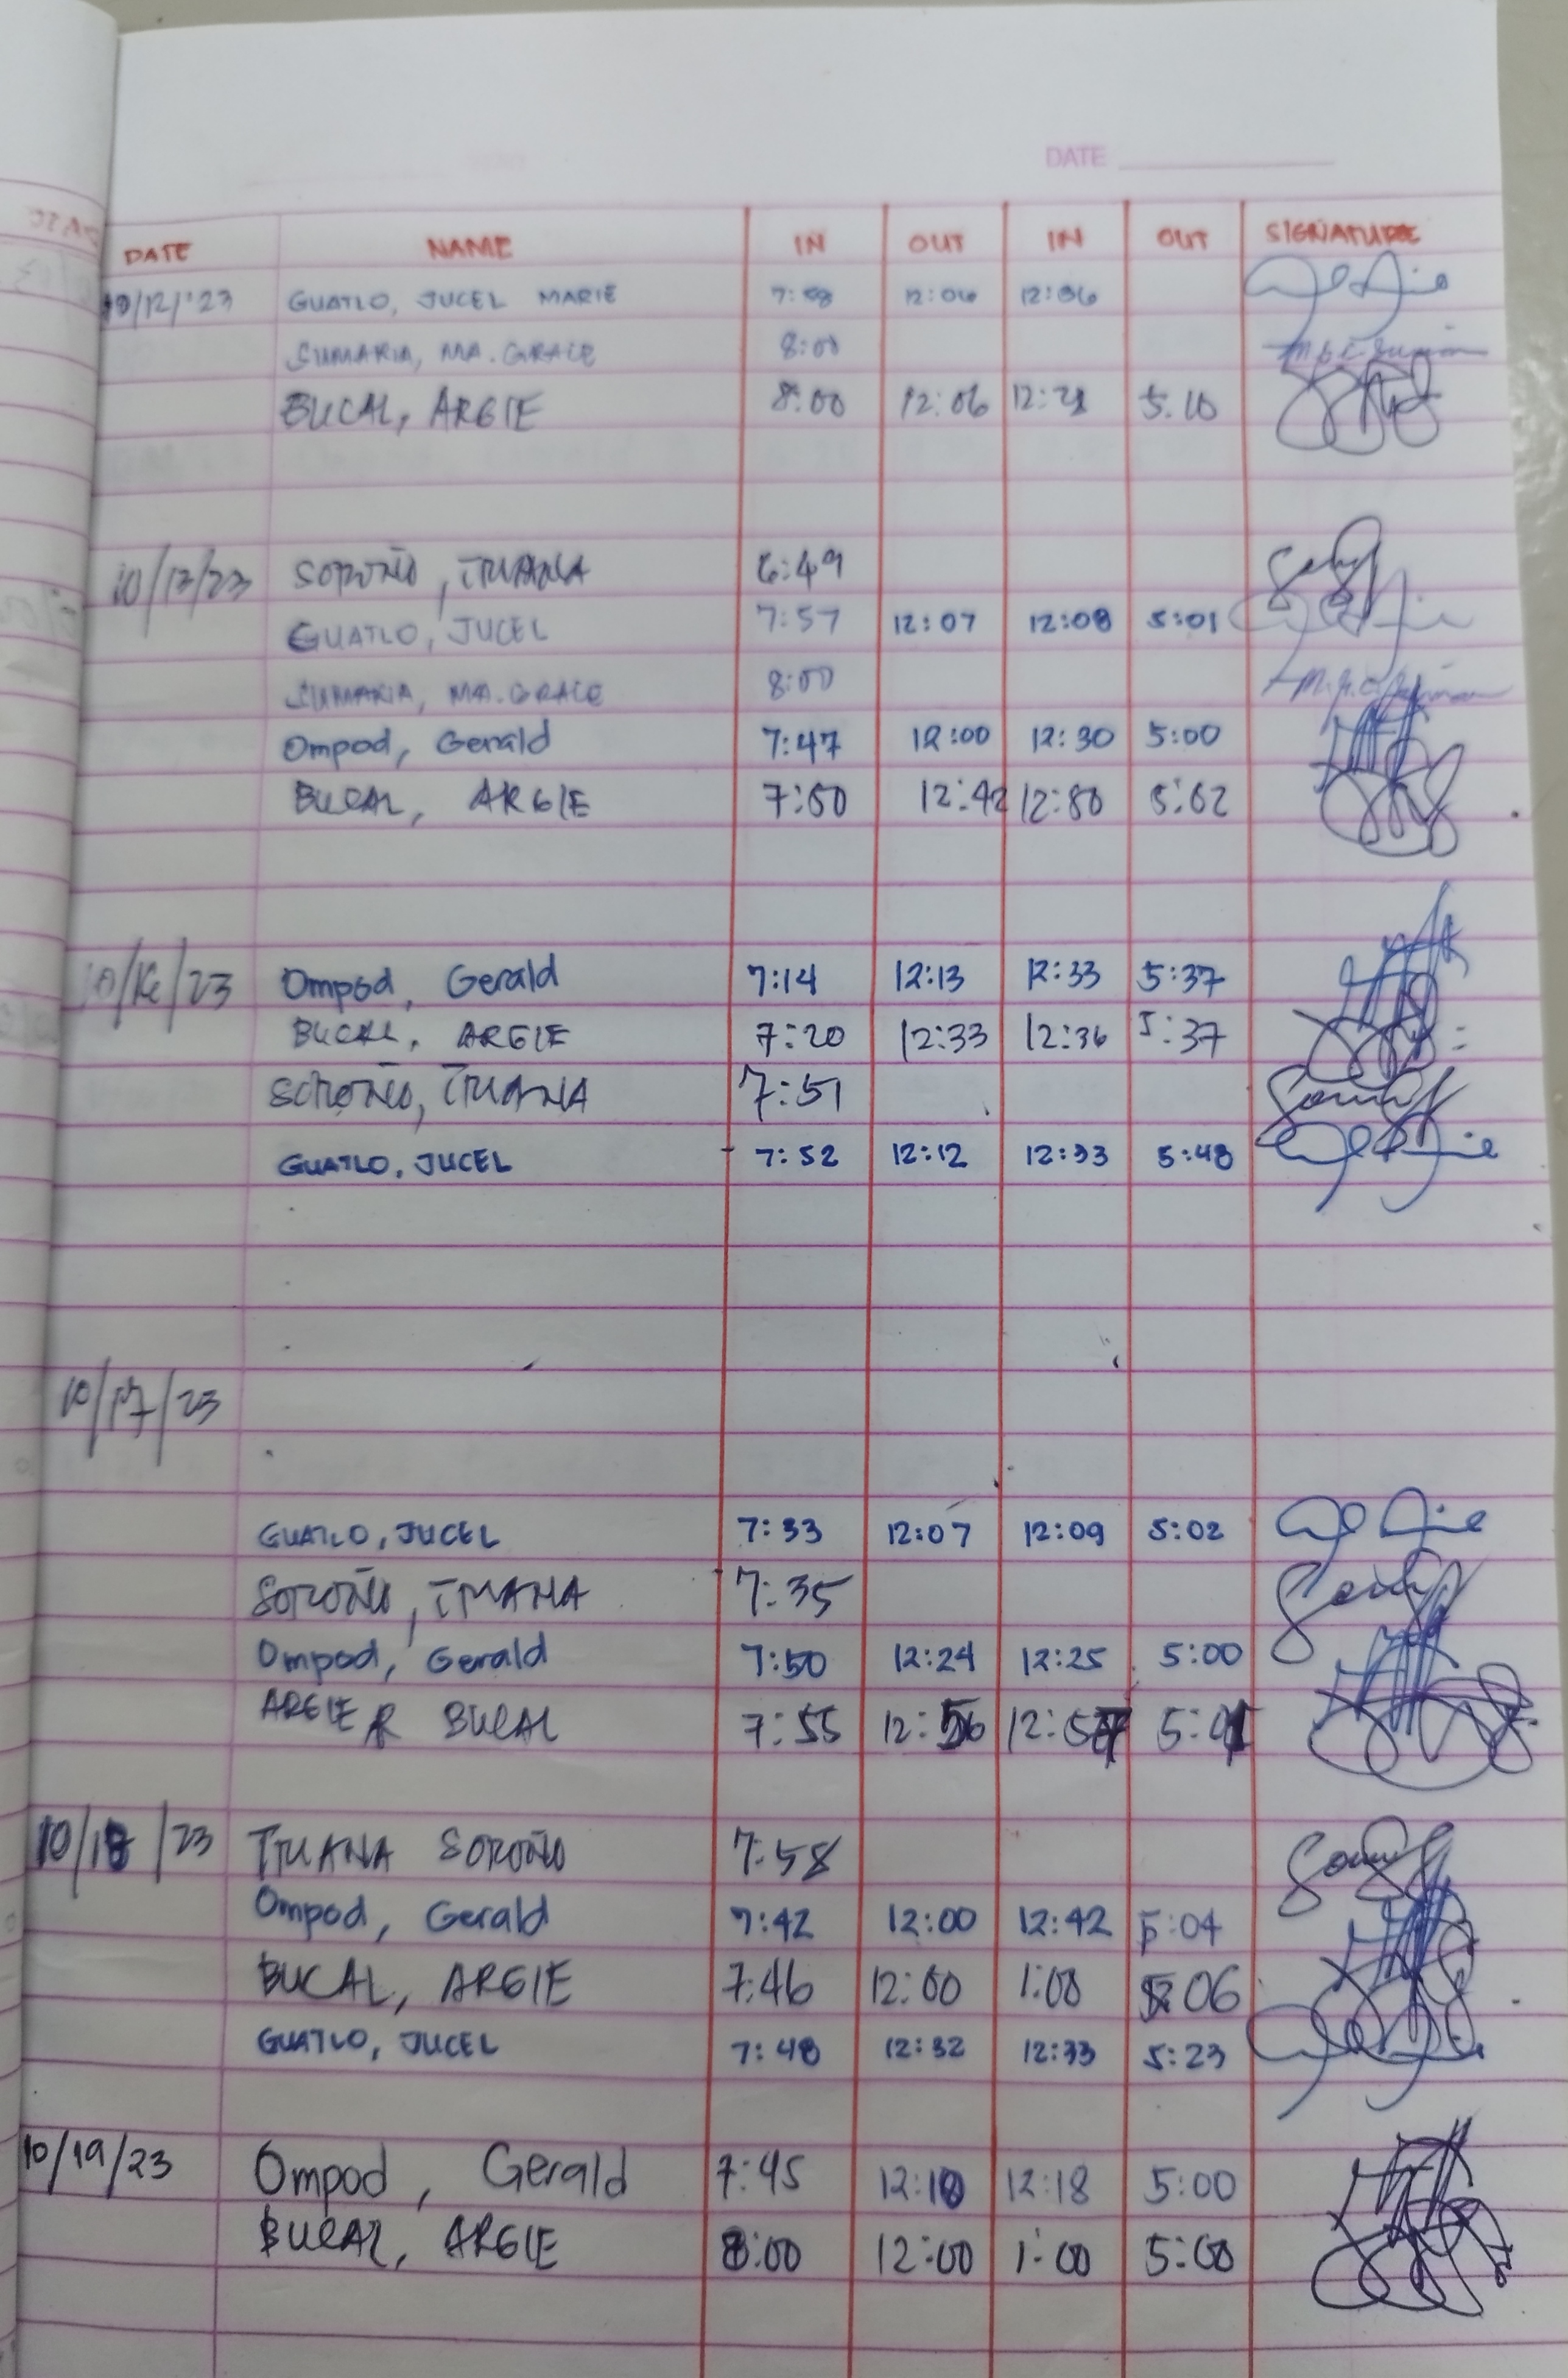 DATE
DATE NAME IN OUT IN OUT SIGNATURE
10/12/'23 GUATLO, JUCEL MARIE 7:58 12:06 12:06
SUMARIA, MA. GRACE 8:00
BUCAL, ARGIE 8:00 12:06 12:21 5:10
10/13/23 SOROÑO, 6:49
GUATLO, JUCEL 7:57 12:07 12:08 5:01
SUMARIA, MA. GRACE 8:00
Ompod, Gerald 7:47 12:00 12:30 5:00
BUCAL, ARGIE 7:50 12:42 12:50 5:02
10/16/23 Ompod, Gerald 7:14 12:13 12:33 5:37
BUCAL, ARGIE 7:20 12:33 12:36 5:37
SOROÑO, 7:51
GUATLO, JUCEL 7:52 12:12 12:33 5:48
10/17/23
GUATLO, JUCEL 7:33 12:07 12:09 5:02
SOROÑO, 7:35
Ompod, Gerald 7:50 12:24 12:25 5:00
ARGIE R BUCAL 7:55 12:56 12:57 5:01
10/18/23 SOROÑO 7:58
Ompod, Gerald 7:42 12:00 12:42 5:04
BUCAL, ARGIE 7:46 12:00 1:00 5:06
GUATLO, JUCEL 7:48 12:32 12:33 5:23
10/19/23 Ompod, Gerald 7:45 12:18 12:18 5:00
BUCAL, ARGIE 8:00 12:00 1:00 5:00